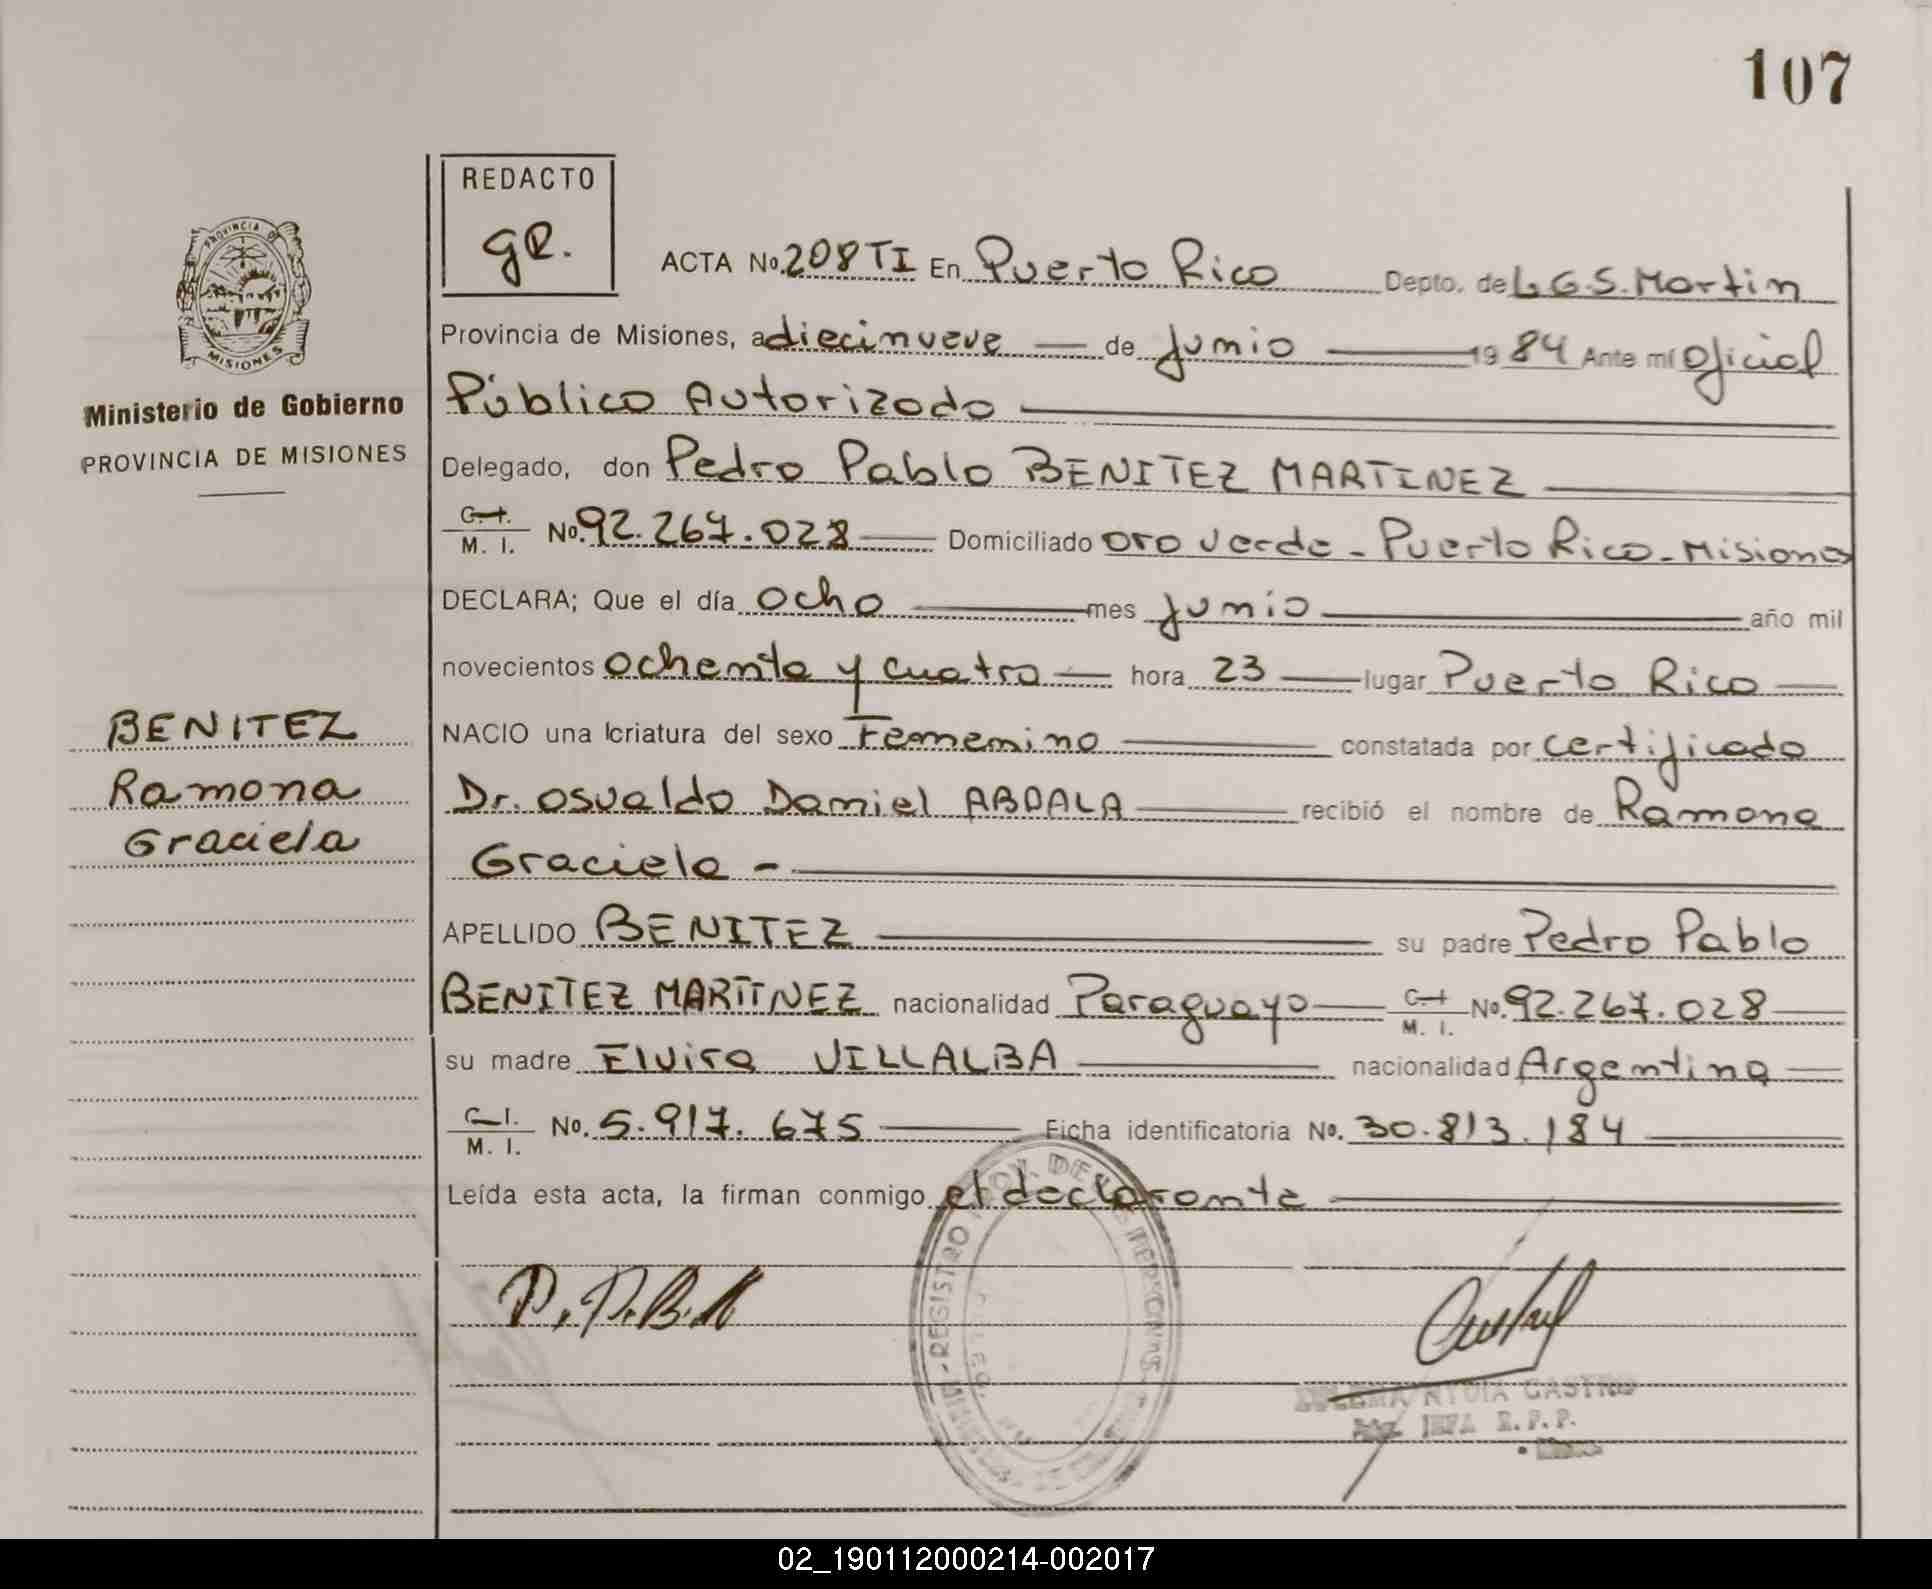 107
REDACTO
gR.
PROVINCIA DE
MISIONES
Ministerio de Gobierno
PROVINCIA DE MISIONES
ACTA No. 208 TI En Puerto Rico Depto. de L.G.S. Martin
Provincia de Misiones, a diecinueve — de junio — 19 84 Ante mí Oficial
Público Autorizado —
Delegado, don Pedro Pablo BENITEZ MARTINEZ —
C. I. M. I. No. 92.267.028 — Domiciliado Oro Verde - Puerto Rico - Misiones
DECLARA; Que el día ocho — mes junio — año mil
novecientos ochenta y cuatro — hora 23 — lugar Puerto Rico —
NACIO una criatura del sexo Femenino — constatada por certificado
Dr. Osvaldo Daniel ABDALA — recibió el nombre de Ramona
Graciela - —
BENITEZ
Ramona
Graciela
APELLIDO BENITEZ — su padre Pedro Pablo
BENITEZ MARTINEZ nacionalidad Paraguayo — C. I. M. I. No. 92.267.028 —
su madre Elvira VILLALBA — nacionalidad Argentina —
C. I. M. I. No. 5.917.675 — Ficha identificatoria No. 30.813.184 —
Leída esta acta, la firman conmigo el declarante —
P. P. B. M
REGISTRO PROV. DE LAS PERSONAS
NYDIA CASTRO
JEFA R. P. P.
02_190112000214-002017